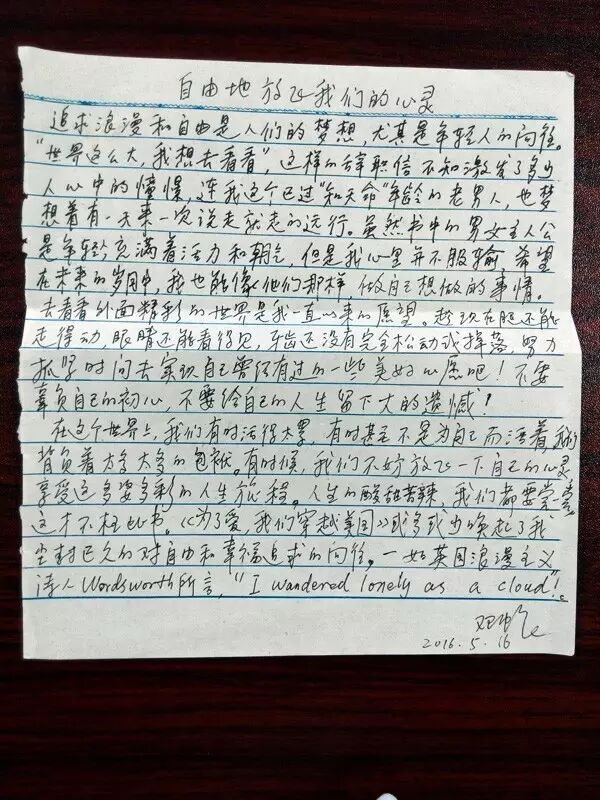 自由地放飞我们的心灵
追求浪漫和自由是人们的梦想，尤其是年轻人的向往。
“世界这么大，我想去看看”，这样的辞职信不知激发了多少
人心中的憧憬，连我这个已过“知天命”年龄的老男人，也梦
想着有一天来一次说走就走的远行。虽然书中的男女主人公
是年轻充满着活力和朝气，但是我心里并不服输，希望
在未来的岁月中，我也能像他们那样，做自己想做的事情。
去看看外面精彩的世界是我一直以来的愿望。趁现在腿还能
走得动，眼睛还能看得见，牙齿还没有完全松动或掉落，努力
抓紧时间去实现自己曾经有过的一些美好心愿吧！不要
辜负自己的初心，不要给自己的人生留下大的遗憾！
在这个世界上，我们有时活得太累，有时甚至不是为自己而活着，我们
背负着太多太多的包袱。有时候，我们不妨放飞一下自己的心灵，
享受这多姿多彩的人生旅程。人生的酸甜苦辣，我们都要尝尝，
这才不枉此书。《为了爱，我们穿越美国》或多或少唤起了我
尘封已久的对自由和幸福追求的向往。一如英国浪漫主义
诗人Wordsworth所言，“I wandered lonely as a cloud”。
2016.5.16